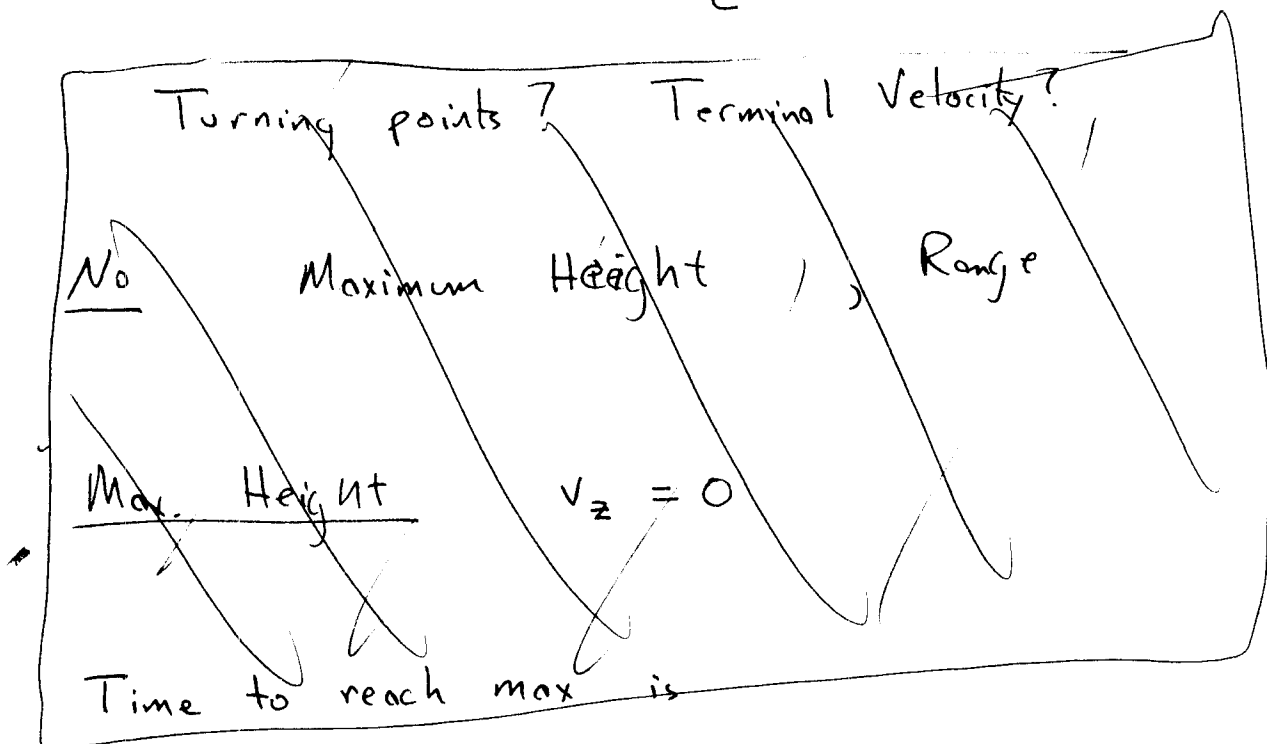 Turning points? Terminal Velocity?
No Maximum Height, Range
Max. Height v_z = 0
Time to reach max is